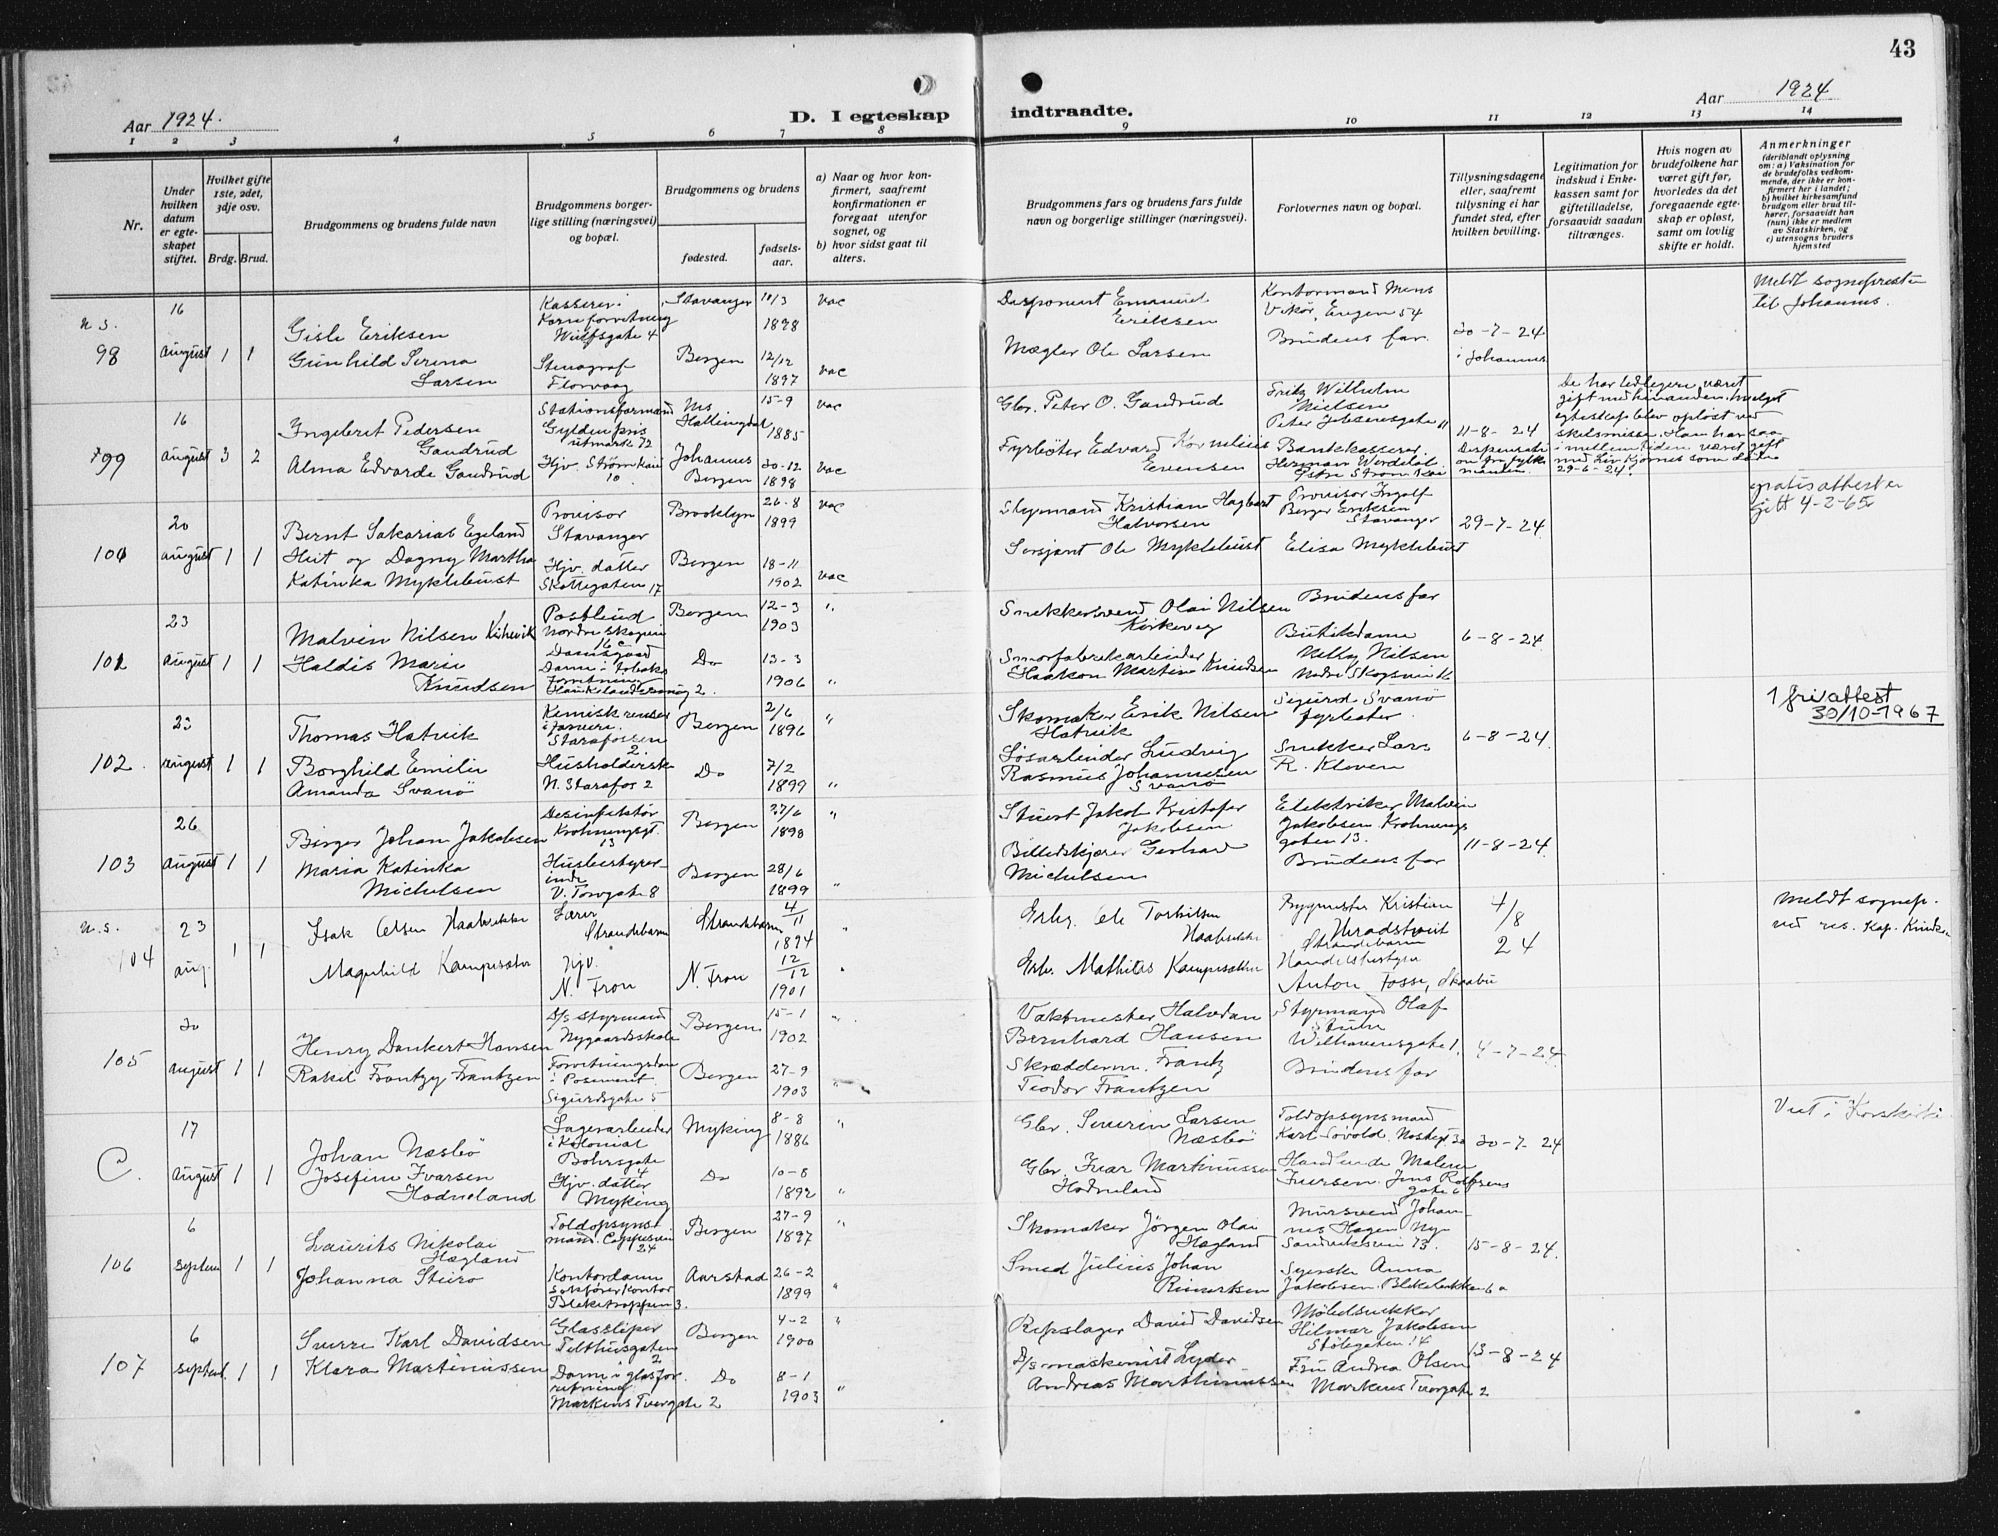 43
Aar 1924.
D. I egteskap
indtraadte.
Aar 1924
1 2 3 4 5 6 7 8 9 10 11 12 13 14
Nr.
Under hvilken datum er egteskapet stiftet.
Hvilket gifte 1ste, 2det, 3dje osv.
Brdg. Brud.
Brudgommens og brudens fulde navn
Brudgommens borgerlige stilling (næringsvei) og bopæl.
Brudgommens og brudens
fødested.
fødselsaar.
a) Naar og hvor konfirmert, saafremt konfirmationen er foregaat utenfor sognet, og
b) hvor sidst gaat til alters.
Brudgommens fars og brudens fars fulde navn og borgerlige stillinger (næringsvei).
Forlovernes navn og bopæl.
Tillysningsdagene eller, saafremt tillysning ei har fundet sted, efter hvilken bevilling.
Legitimation for indskud i Enkekassen samt for giftetilladelse, forsaavidt saadan tiltrænges.
Hvis nogen av brudefolkene har været gift før, hvorledes da det foregaaende egteskap er opløst, samt om lovlig skifte er holdt.
Anmerkninger
(deriblandt oplysning om: a) Vaksination for de brudefolks vedkommende, der ikke er konfirmert her i landet; b) hvilket kirkesamfund brudgom eller brud tilhører, forsaavidt han (hun) ikke er medlem av Statskirken, og c) utensogns bruders hjemsted
n. s.
98
16 august
1 1
Gisle Eriksen
Gunhild Serina
Larsen
Kasserer i
Kornforretning
Wulfsgate 4
Stenograf
Florvaag
Stavanger
10/3
1898
vac
Bergen
12/12
1897
vac
Disponent Emanuel
Eriksen
Mægler Ole Larsen
Kontormand Mons
Vikør, Engen 54
Brudens far.
20-7-24
i Johannes
Meldt sognepresten
til Johannes.
99
16 august
3 2
Ingebret Pedersen
Gandrud
Alma Edvarda Gandrud
Stationsformand
Gyldenpris
utmark 72
Hjv. Strømkai
10
Nes
Hallingdal
15-9
1885
vac
Johannes
Bergen
20-12
1898
vac
Gbr. Peter O. Gandrud
Fyrbøter Edvard Kornelius
Evensen
Fritz Wilhelm
Nielsen
Peter Jebsensgate 11
Bankkasserer
Herman
11-8-24
De har tidligere været
gift med hinanden, hvilket
egteskap blev opløst ved
skilsmisse. Han har saa
i mellemtiden været gift
29-6-24.
100
20 august
1 1
Bernt Sakarias Egeland
Heit og Dagny Martha
Katinka Myklebust
Provisor
Stavanger
Hjv. datter
Skottegaten 17
Brooklyn
26-8
1899
vac
Bergen
18-11
1902
vac
Styrmand Kristian Hagbart
Halvorsen
Sersjant Ole Myklebust
Provisor Ingolf
Berger Eriksen
Stavanger
Elisa Myklebust
29-7-24
gratisattest er
gitt 4-2-65
101
23 august
1 1
Malvin Nilsen Kirkevik
Haldis Marie
Knudsen
Postbud
Nordre Skogvei
16c
Damsgaard
Dame i tobaks
forretning
2.
Bergen
12-3
1903
"
Do
13-3
1906
"
Snekkersvend Olai Nilsen
Kirkevig
Smørfabrikarbeider
Haakon Martin Knudsen
Brudens far
Butikdame
Nelly Nilsen
Nedre Skogvei 16
6-8-24
102.
23 august
1 1
Thomas Hatvik
Borghild Emilie
Amanda Svanø
Kemisk renser
i farveri
Starefossen
2.
Husholderske
N. Starefos 2
Bergen
2/6
1896
"
Do
7/2
1899
"
Skomaker Erik Nilsen
Hatvik
Løsarbeider Ludvig
Rasmus Johannesen
Svanø
Sigurd Svanø
fyrbøter
Snekker Lars
R. Kleven
6-8-24.
1 friattest
30/10-1967
103
26 august
1 1
Birger Johan Jakobsen
Maria Katinka
Michelsen
Desinfektør
Kroningsgt.
13
Husbestyrer-
inde
V. Torvgate 8
Bergen
27/6
1898
"
Bergen
28/6
1899
"
Stuert Jakob Kristofer
Jakobsen
Billedskjærer Gerhard
Michelsen
Elektriker Malvin
Jakobsen Kronings
gaten 13.
Brudens far
11-8-24.
n. s.
104
23 aug.
1 1
Isak Olsen Haabrekke
Magnhild Kampesæter
Lærer
Strandebarm
Hjv.
N. Fron
Strandebarm
4/11
1894
"
N. Fron
12/12
1901
"
Grbr. Ole Torkilsen
Haabrekke
Grbr. Mathias Kampesæter
Bygmester Kristian
Strandebarm
Handelsbestyrer
Anton Fosse, Skaabu
7/8
24
Meldt sognepr.
ved res. kap.
105
30 august
1 1
Henry Dankert Hansen
Rakel Frantzy Frantzen
D/s styrmand
Nygaardsskole
Forretningsdame
i Posement
Sigurdsgate 5
Bergen
15-1
1902
"
Bergen
27-9
1903
"
Vaktmester Halvdan
Bernhard Hansen
Skræddermr. Frantz
Teodor Frantzen
Styrmand Olaf
Welhavensgate 1.
Brudens far
4-7-24
C.
17 august
1 1
Johan Næsbø
Josefine Ivarsen
Hodneland
Lagerarbeider
i kolonial
Bohrsgate
4
Hjv. datter
Myking
Myking
8-8
1886
"
Do
10-8
1892
"
Gbr. Severin Larsen
Næsbø
Gbr. Ivar Martinussen
Hodneland
Toldopsynsmand
Handlende Malene
Iversen. Jens Rolfsens
gate 6
20-7-24
Viet i Korskirken
106
6 septem
1 1
Laurits Nikolai
Hægland
Johanna Sturo
Toldopsynst
mand.
24
Kontordame
Sakførerkontor
Bleketrappen 3.
Bergen
27-9
1897
"
Aarstad
26-2
1899
"
Skomaker Jørgen Olai
Hægland
Smed Julius Johan
Rinertsen
Mursvend Johan-
nes Hagen Nye
Sandviksvei 73.
Syerske Anna
Jakobsen. Blekebakken 6a
15-8-24.
107
6 septemb.
1 1
Sverre Karl Davidsen
Klara Martinussen
Glassliper
Telthusgaten
2
Dame i glasfor-
retning
Markens Tvergate 2
Bergen
4-2
1900
"
Do
8-1
1903
"
Repslager David Davidsen
D/s maskinist Lyder
Andreas Marthinussen
Møbelsnekker
Hilmar Jakobsen
Stølegaten 14
Fru Andrea Olsen
Markens Tvergate 2
13-8-24